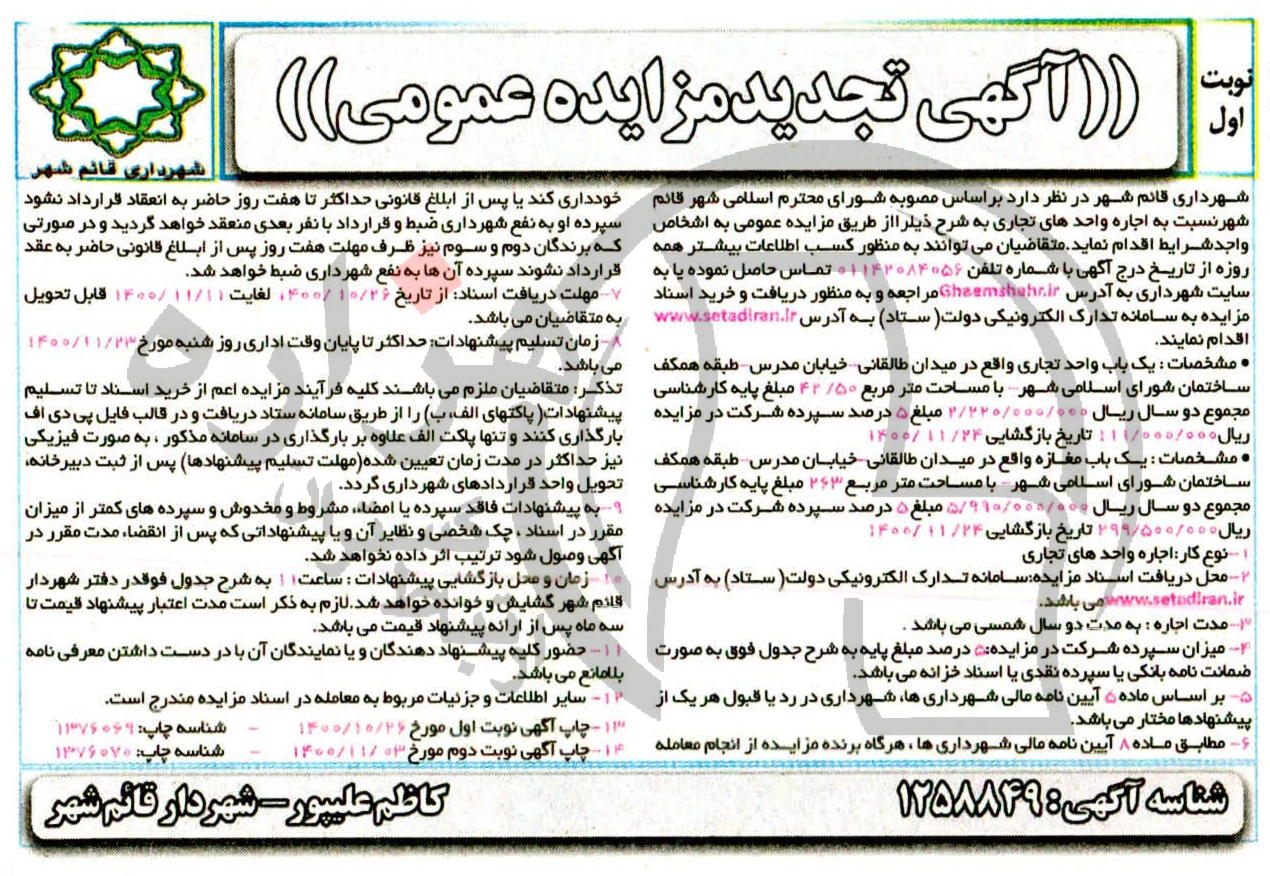 نوبت
اول
((آگهی تجدیدمزایده عمومی))
شهرداری قائم شهر
شهرداری قائم شهر در نظر دارد براساس مصوبه شورای محترم اسلامی شهر قائم
شهرنسبت به اجاره واحد های تجاری به شرح ذیلرااز طریق مزایده عمومی به اشخاص
واجدشرایط اقدام نماید.متقاضیان می توانند به منظور کسب اطلاعات بیشتر همه
روزه از تاریخ درج آگهی با شماره تلفن ۰۱۱۴۲۰۸۴۰۵۶ تماس حاصل نموده یا به
سایت شهرداری به آدرس Ghaemshahr.ir مراجعه و به منظور دریافت و خرید اسناد
مزایده به سامانه تدارک الکترونیکی دولت( ستاد) به آدرس www.setadiran.ir
اقدام نمایند.
• مشخصات : یک باب واحد تجاری واقع در میدان طالقانی–خیابان مدرس–طبقه همکف
ساختمان شورای اسلامی شهر– با مساحت متر مربع ۴۲/۵۰ مبلغ پایه کارشناسی
مجموع دو سال ریال ۲/۲۲۰/۰۰۰/۰۰۰ مبلغ۵ درصد سپرده شرکت در مزایده
ریال۱۱۱/۰۰۰/۰۰۰ تاریخ بازگشایی ۱۴۰۰/۱۱/۲۴
• مشخصات : یک باب مغازه واقع در میدان طالقانی–خیابان مدرس–طبقه همکف
ساختمان شورای اسلامی شهر– با مساحت متر مربع ۲۶۳ مبلغ پایه کارشناسی
مجموع دو سال ریال ۵/۹۹۰/۰۰۰/۰۰۰ مبلغ ۵ درصد سپرده شرکت در مزایده
ریال۲۹۹/۵۰۰/۰۰۰ تاریخ بازگشایی ۱۴۰۰/۱۱/۲۴
۱–نوع کار:اجاره واحد های تجاری
۲–محل دریافت اسناد مزایده:سامانه تدارک الکترونیکی دولت( ستاد) به آدرس
www.setadiran.ir می باشد.
۳–مدت اجاره : به مدت دو سال شمسی می باشد .
۴– میزان سپرده شرکت در مزایده:۵ درصد مبلغ پایه به شرح جدول فوق به صورت
ضمانت نامه بانکی یا سپرده نقدی یا اسناد خزانه می باشد.
۵– بر اساس ماده ۵ آیین نامه مالی شهرداری ها، شهرداری در رد یا قبول هر یک از
پیشنهادها مختار می باشد.
۶– مطابق ماده ۸ آیین نامه مالی شهرداری ها ، هرگاه برنده مزایده از انجام معامله
خودداری کند یا پس از ابلاغ قانونی حداکثر تا هفت روز حاضر به انعقاد قرارداد نشود
سپرده او به نفع شهرداری ضبط و قرارداد با نفر بعدی منعقد خواهد گردید و در صورتی
که برندگان دوم و سوم نیز ظرف مهلت هفت روز پس از ابلاغ قانونی حاضر به عقد
قرارداد نشوند سپرده آن ها به نفع شهرداری ضبط خواهد شد.
۷–مهلت دریافت اسناد: از تاریخ ۱۴۰۰/۱۰/۲۶ لغایت ۱۴۰۰/۱۱/۱۱ قابل تحویل
به متقاضیان می باشد.
۸–زمان تسلیم پیشنهادات: حداکثر تا پایان وقت اداری روز شنبه مورخ ۱۴۰۰/۱۱/۲۳
می باشد.
تذکر: متقاضیان ملزم می باشند کلیه فرآیند مزایده اعم از خرید اسناد تا تسلیم
پیشنهادات( پاکتهای الف، ب) را از طریق سامانه ستاد دریافت و در قالب فایل پی دی اف
بارگذاری کنند و تنها پاکت الف علاوه بر بارگذاری در سامانه مذکور ، به صورت فیزیکی
نیز حداکثر در مدت زمان تعیین شده(مهلت تسلیم پیشنهادها) پس از ثبت دبیرخانه،
تحویل واحد قراردادهای شهرداری گردد.
۹–به پیشنهادات فاقد سپرده یا امضاء، مشروط و مخدوش و سپرده های کمتر از میزان
مقرر در اسناد ، چک شخصی و نظایر آن و یا پیشنهاداتی که پس از انقضاء مدت مقرر در
آگهی وصول شود ترتیب اثر داده نخواهد شد.
۱۰–زمان و محل بازگشایی پیشنهادات : ساعت۱۱ به شرح جدول فوقدر دفتر شهردار
قائم شهر گشایش و خوانده خواهد شد.لازم به ذکر است مدت اعتبار پیشنهاد قیمت تا
سه ماه پس از ارائه پیشنهاد قیمت می باشد.
۱۱– حضور کلیه پیشنهاد دهندگان و یا نمایندگان آن با در دست داشتن معرفی نامه
بلامانع می باشد.
۱۲– سایر اطلاعات و جزئیات مربوط به معامله در اسناد مزایده مندرج است.
۱۳–چاپ آگهی نوبت اول مورخ ۱۴۰۰/۱۰/۲۶ – شناسه چاپ: ۱۳۷۶۰۶۹
۱۴–چاپ آگهی نوبت دوم مورخ ۱۴۰۰/۱۱/۰۳ – شناسه چاپ: ۱۳۷۶۰۷۰
شناسه آگهی: ۱۲۵۸۸۴۹
کاظم علیپور–شهردار قائم شهر